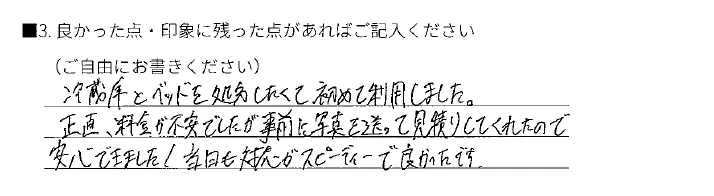 ■3. 良かった点・印象に残った点があればご記入ください
（ご自由にお書きください）
冷蔵庫とベッドを処分したくて初めて利用しました。
正直、料金が不安でしたが事前に写真を送って見積りしてくれたので
安心できました！当日も対応がスピーディーで良かったです。